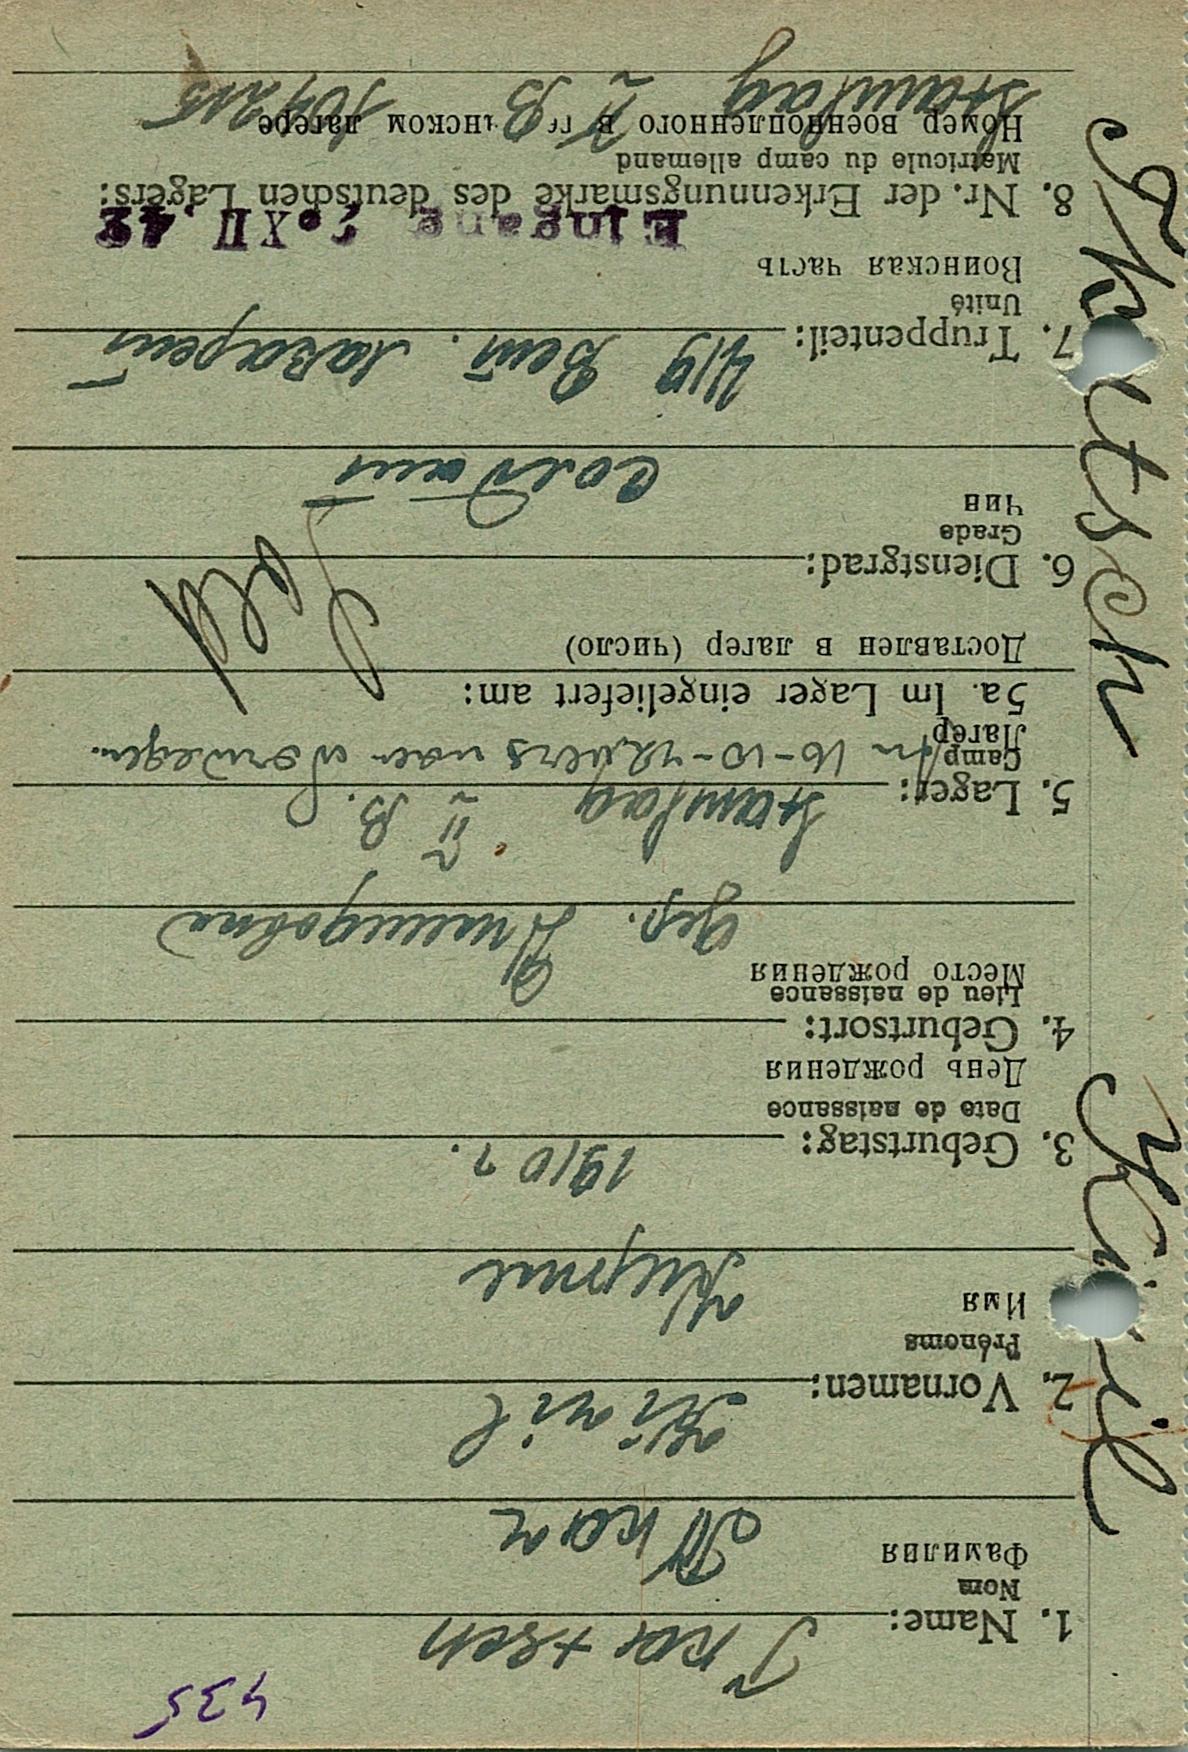 435
1. Name: Tkatsch
Nom
Фамилия Ткач
2. Vornamen: Kiril
Prénoms
Имя Кирил
3. Geburtstag: 1910 г.
Date de naissance
День рождения
4. Geburtsort:
Lieu de naissance
Место рождения
дер.
5. Lager: Stamlag II B.
Camp
Лагерь 16-10-42 vers nach Norwegen
5a. Im Lager eingeliefert am:
Доставлен в лагер (число)
6. Dienstgrad: Sold
Grade
Чин
солдат
7. Truppenteil: 419 Вет. лазарет
Unité
Воинская часть
Eingang 7. XII. 42
8. Nr. der Erkennungsmarke des deutschen Lagers:
Matricule du camp allemand
Номер военнопленного в германском лагере
Stamlag II B 104215
Tkatsch Kiril